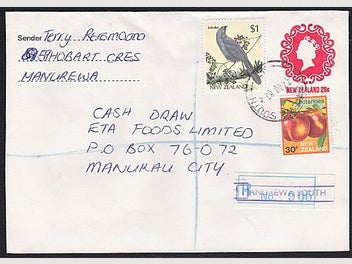 Sender Terry
HOBART CRES
MANUREWA
Kokako $1
NEW ZEALAND
NEW ZEALAND 25c
SOUTH
Nectarines
30c NEW ZEALAND
CASH DRAW
ETA FOODS LIMITED
P.O BOX 76-072
MANUKAU CITY
R MANUREWA SOUTH
No. 900